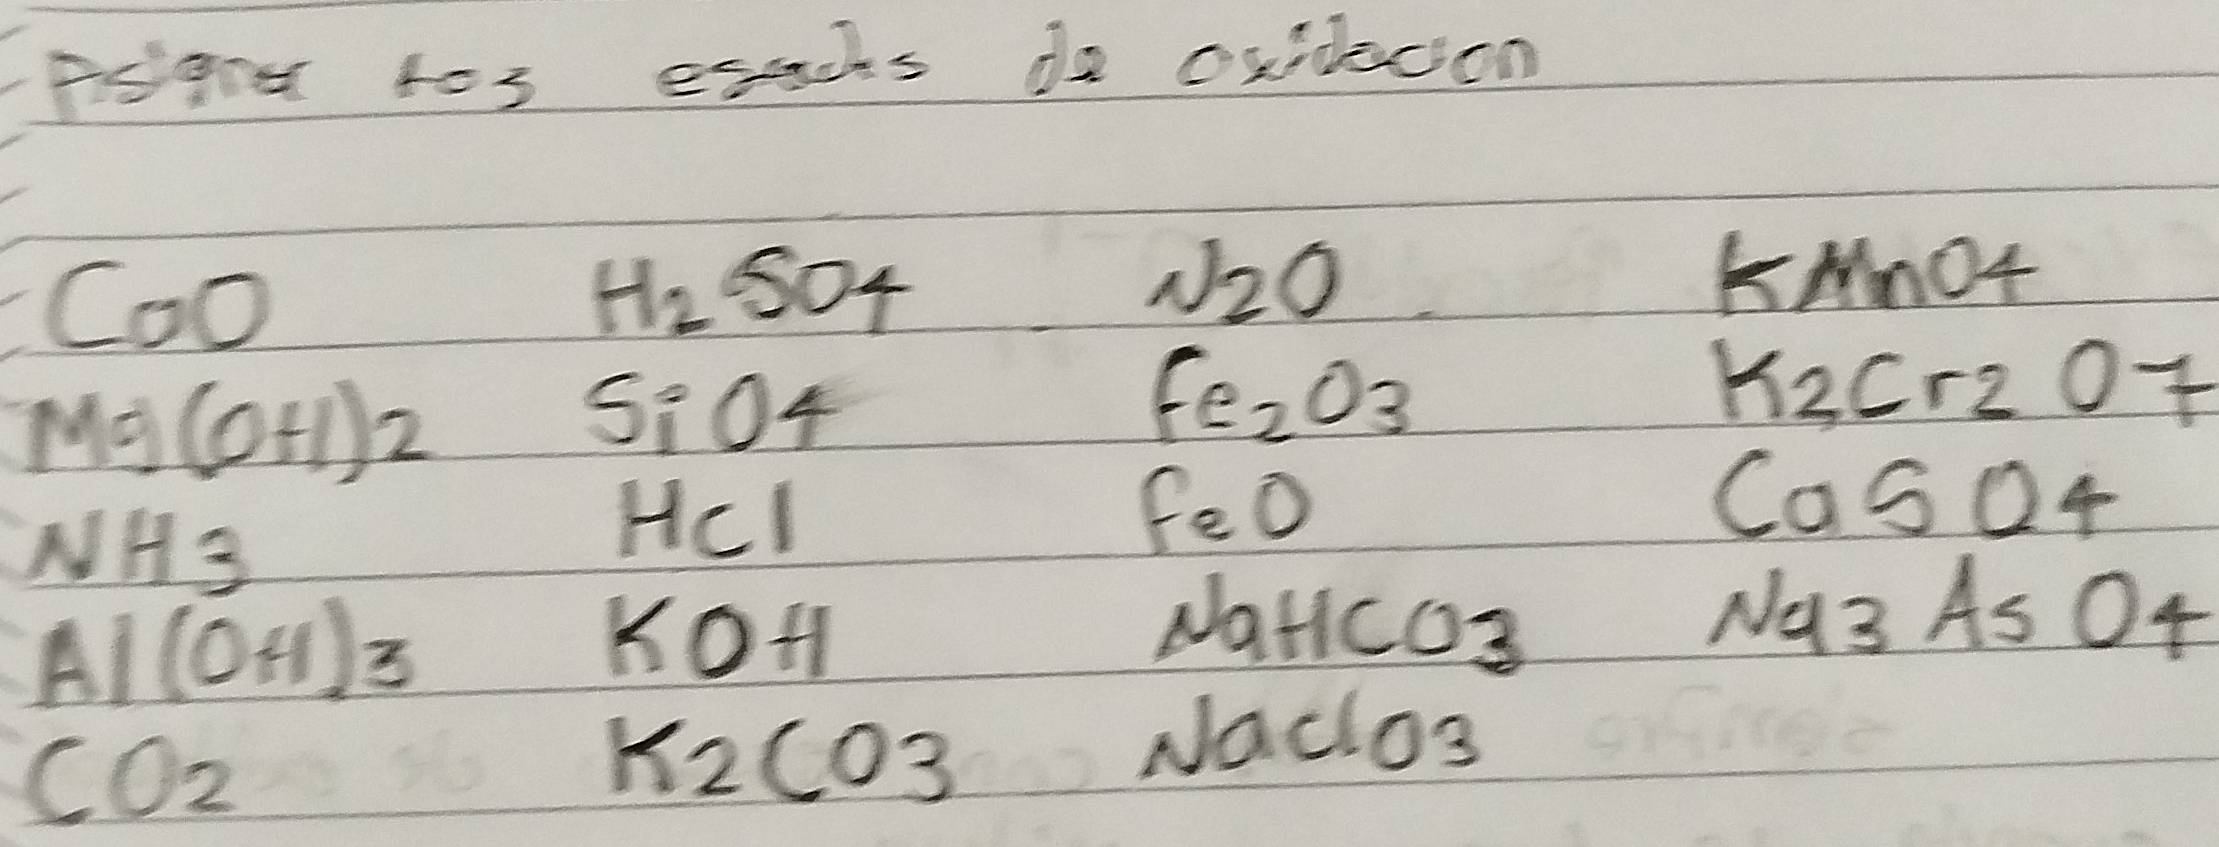 Asigna los estados de oxidacion
CaO H2SO4 N2O KMnO4
Mg(OH)2 SiO4 Fe2O3 K2Cr2O7
NH3 HCl FeO CaSO4
Al(OH)3 KOH NaHCO3 Na3AsO4
CO2 K2CO3 NaClO3